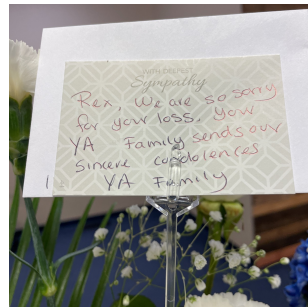 WITH DEEPEST
Sympathy
Rex, We are so sorry
for your loss. Your
YA Family sends our
sincere condolences
YA Family